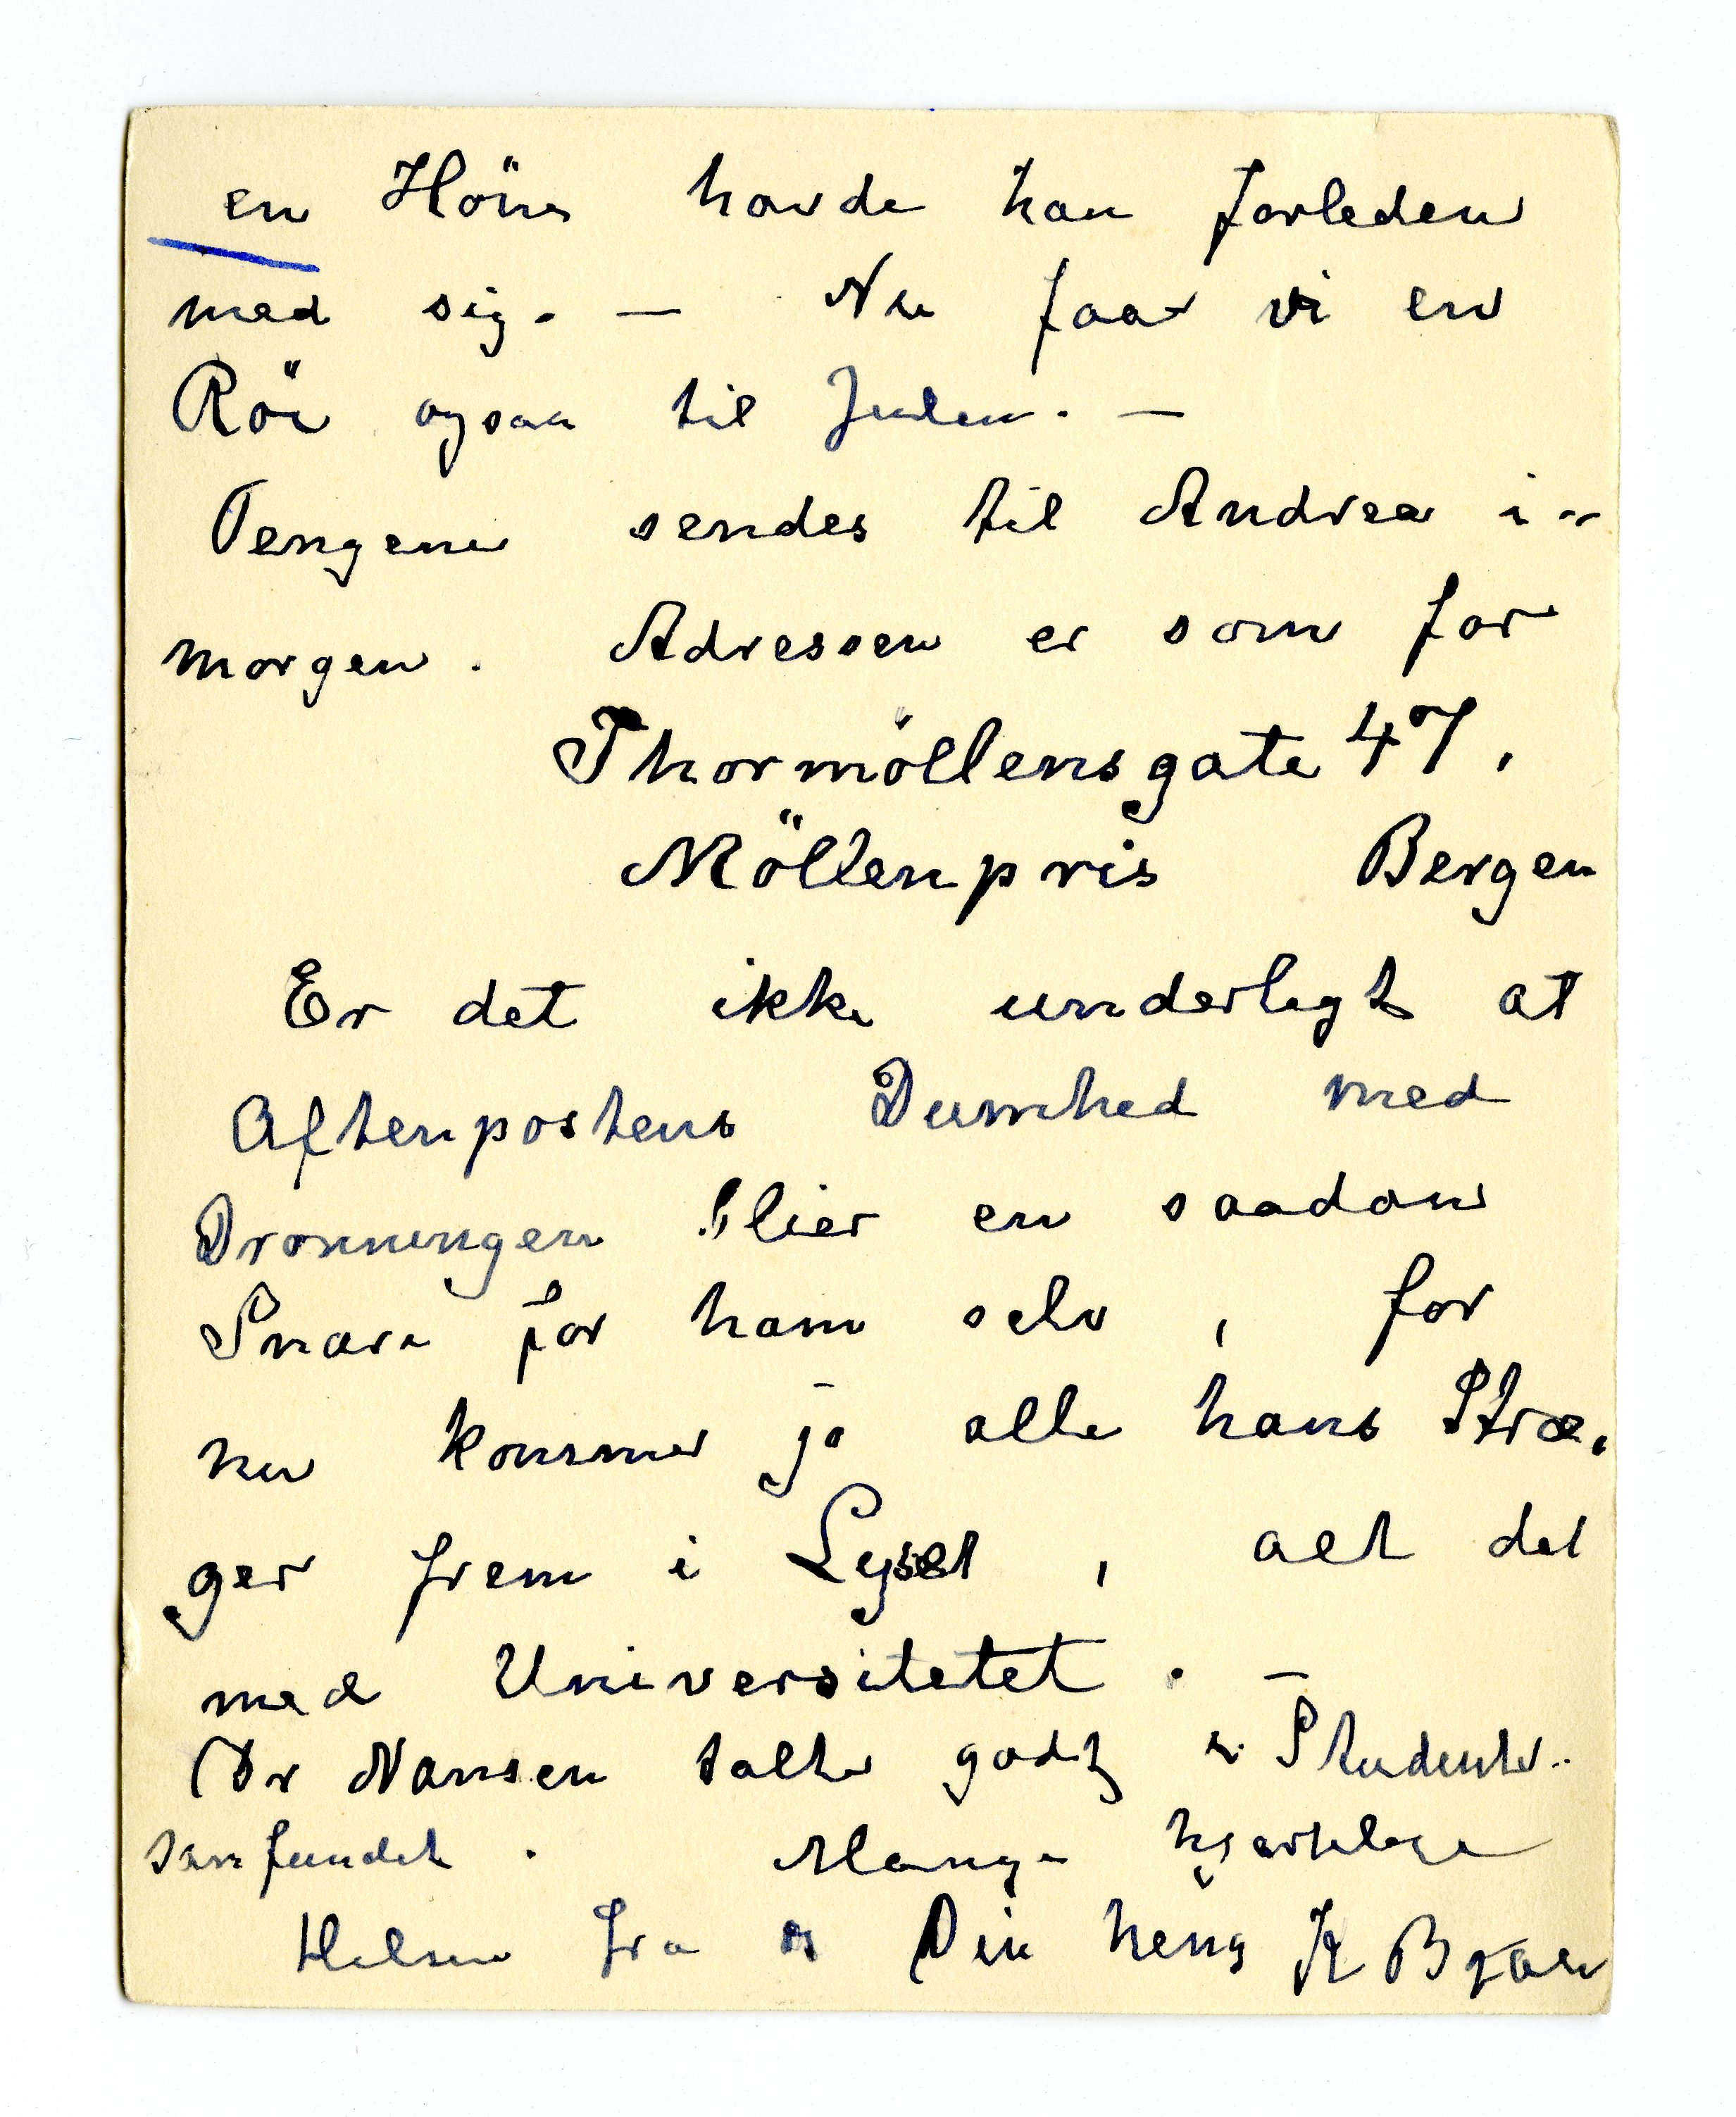 en Höne havde han forleden
med sig. — Nu faar vi en
Röi ogsaa til Julen. —
Pengene sendes til Andrea i-
morgen. Adressen er som for
Thormöllensgate 47,
Möllenpris Bergen
Er det ikke underligt at
Aftenpostens Dumhed med
Dronningen blier en saadan
Snare for ham selv, for
nu kommer ja alle hans Stræ-
ger frem i Lyset, alt det
med Universitetet. —
Dr Nansen talte godt i Studenter-
samfundet. Mange hjertelige
Hilsen fra os Din heng K Bjaer